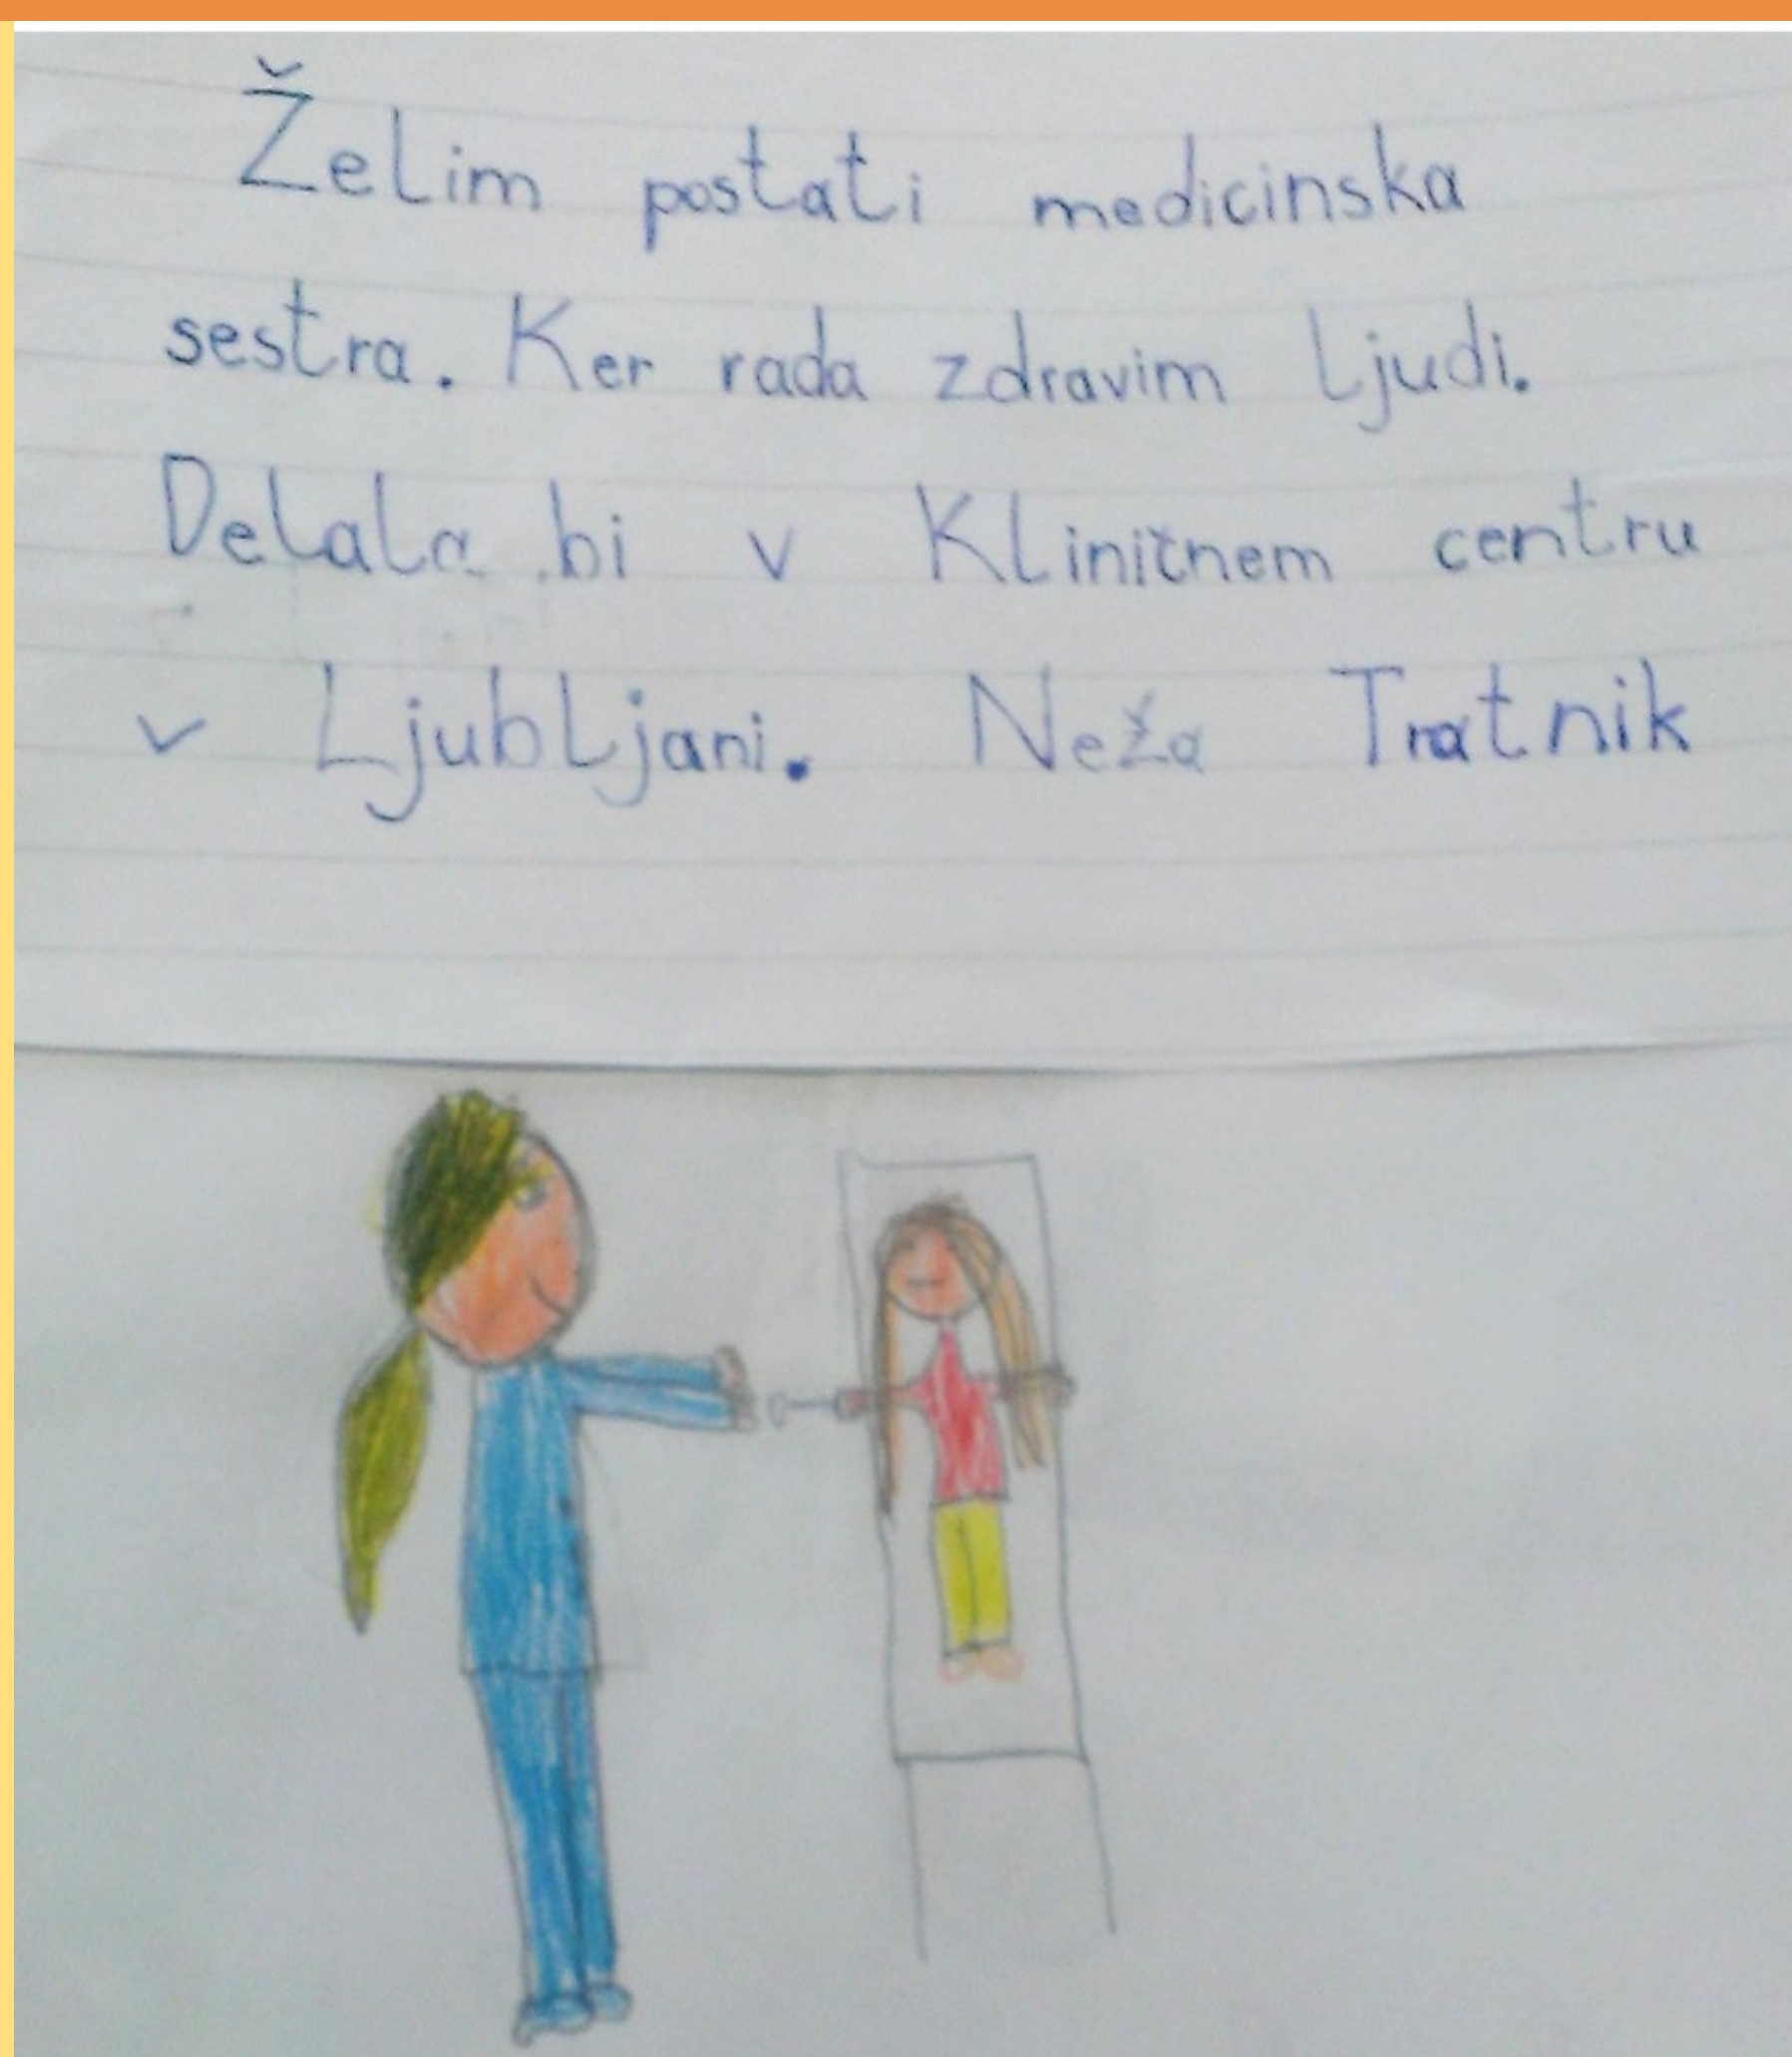 Želim postati medicinska
sestra. Ker rada zdravim ljudi.
Delala bi v Kliničnem centru
v Ljubljani. Neža Tratnik